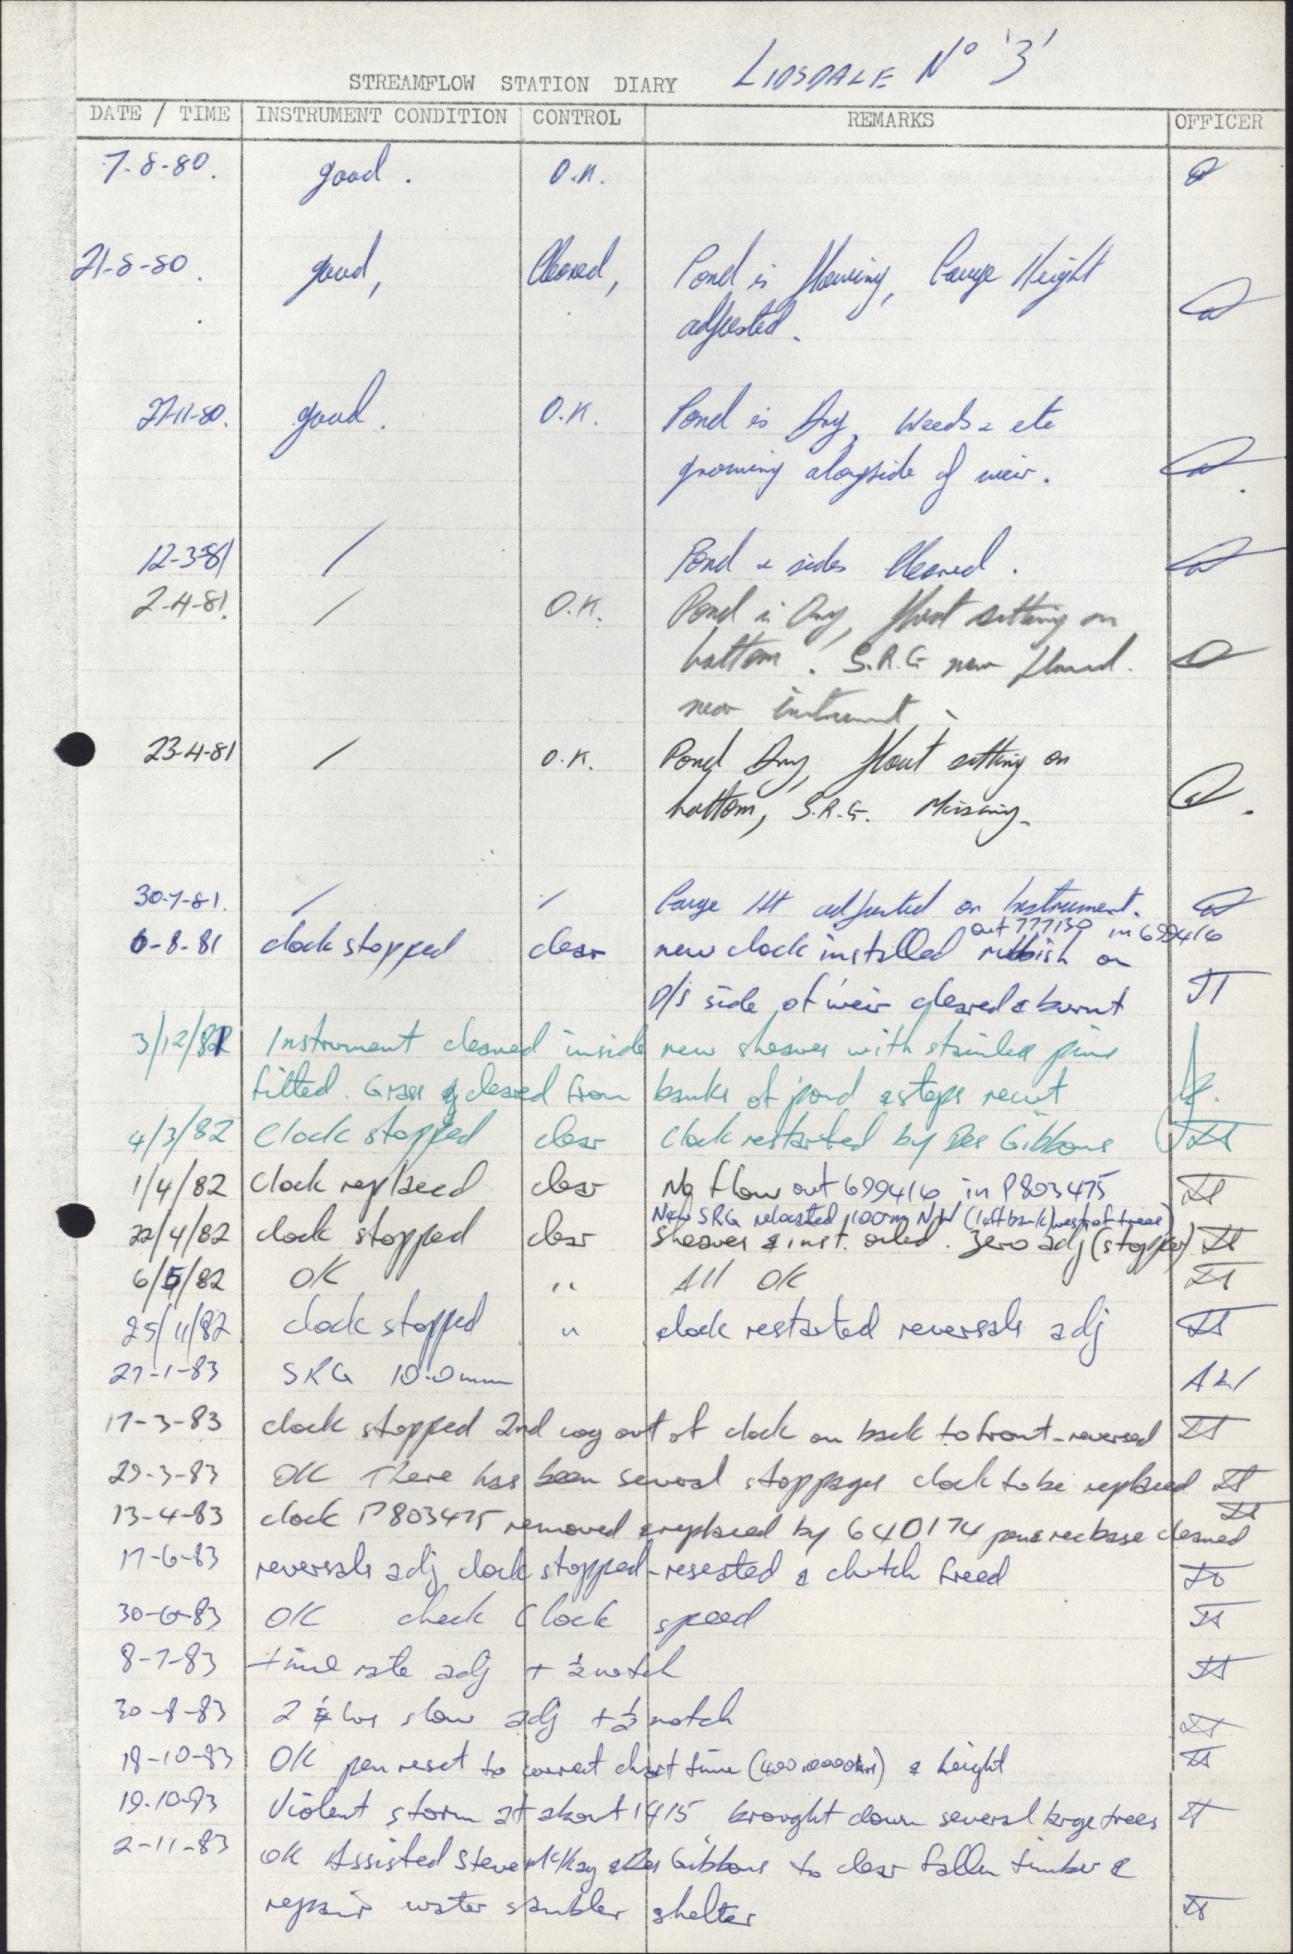 LIDSDALE No '3'
STREAMFLOW STATION DIARY
DATE / TIME INSTRUMENT CONDITION CONTROL REMARKS OFFICER
7-8-80. good. O.K.
21-8-80. good, Cleared, Pond is flowing, Gauge Height
adjusted.
27-11-80. good. O.K. Pond is Dry, Weeds & etc
growing alongside of weir.
12-3-81 / Pond & sides Cleared.
2-4-81. / O.K. Pond is Dry, float sitting on
bottom. S.R.G now placed
near instrument.
23-4-81 / O.K. Pond Dry, float sitting on
bottom, S.R.G. Missing.
30-7-81. / / Gauge Ht adjusted on Instrument.
out 777130 in 699416
6-8-81 clock stopped clear new clock installed rubbish on
D/S side of weir cleared & burnt
3/12/81 Instrument cleaned inside new sheaves with stainless pins
fitted. Grass cleared from banks of pond & steps recut
4/3/82 Clock stopped clear Clock restarted by Des Gibbons
1/4/82 Clock replaced clear No flow out 699416 in P803475
New SRG relocated 100m NW (left bank) west of trees)
22/4/82 clock stopped clear sheaves & inst. oiled. Zero adj (stopper)
6/5/82 OK " All OK
25/11/82 clock stopped " clock restarted reversals adj
27-1-83 SRG 10.0mm
17-3-83 clock stopped 2nd cog out of clock on back to front - reversed
29-3-83 OK There has been several stoppages clock to be replaced
13-4-83 clock P803475 removed & replaced by 640174 pen & rec base cleaned
17-6-83 reversals adj clock stopped - reseated & clutch freed
30-6-83 OK check Clock speed
8-7-83 time rate adj + ½ notch
30-8-83 2 hrs slow adj + ½ notch
18-10-83 OK pen reset to correct chart time & height
19-10-83 Violent storm at about 1415 brought down several large trees
2-11-83 OK Assisted Steve McKay & Des Gibbons to clear fallen timber &
repair water sampler shelter